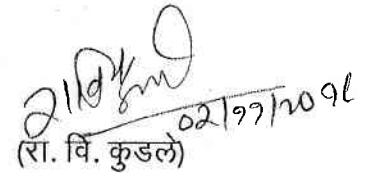 ०२/११/२०१८
(रा. वि. कुडले)